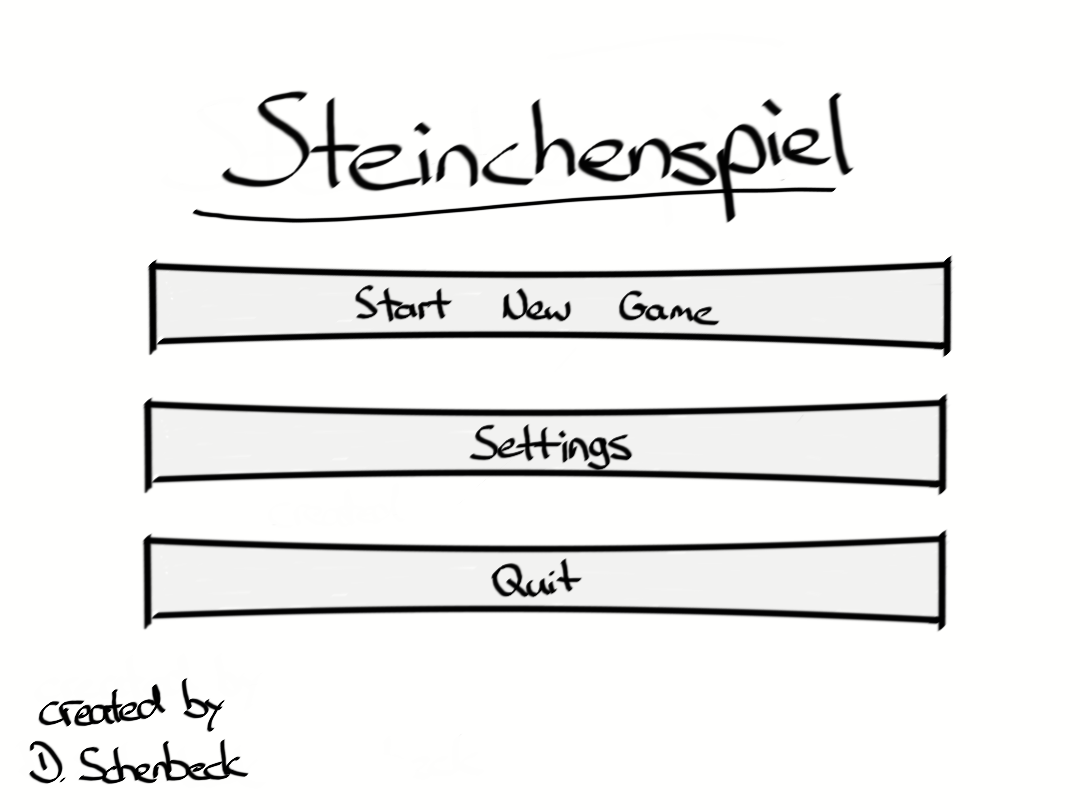 Steinchenspiel
Start New Game
Settings
Quit
created by
D. Scherbeck